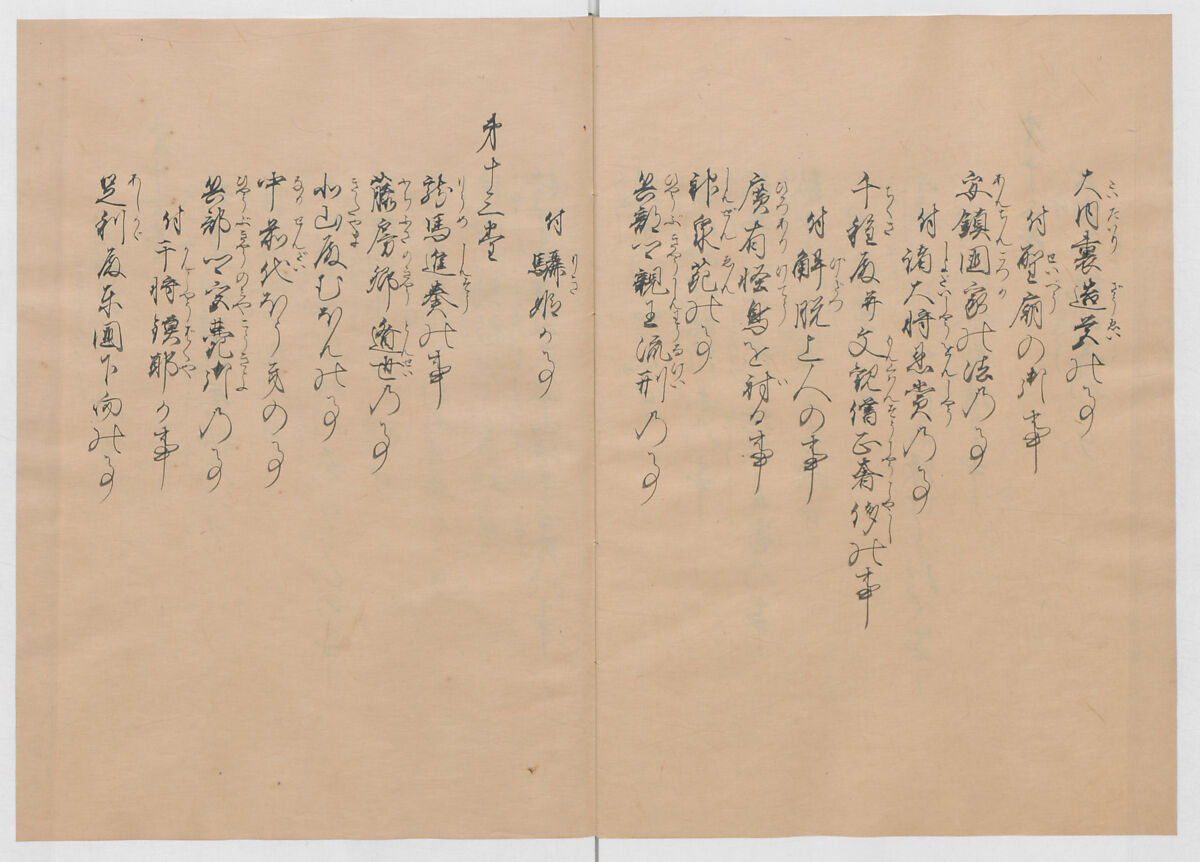 大内裏造営の事
付聖廟の御事
安鎮国家の法の事
付諸大将恩賞の事
千種殿并文観僧正奢侈の事
付解脱上人の事
廣有怪鳥を射る事
神泉苑の事
兵部卿親王流刑の事
付驪姫か事
第十三巻
龍馬進奏の事
藤房卿遁世の事
北山殿むほんの事
中前代ほうきの事
兵部卿宮薨御の事
付干将鏌耶か事
足利殿東國下向の事